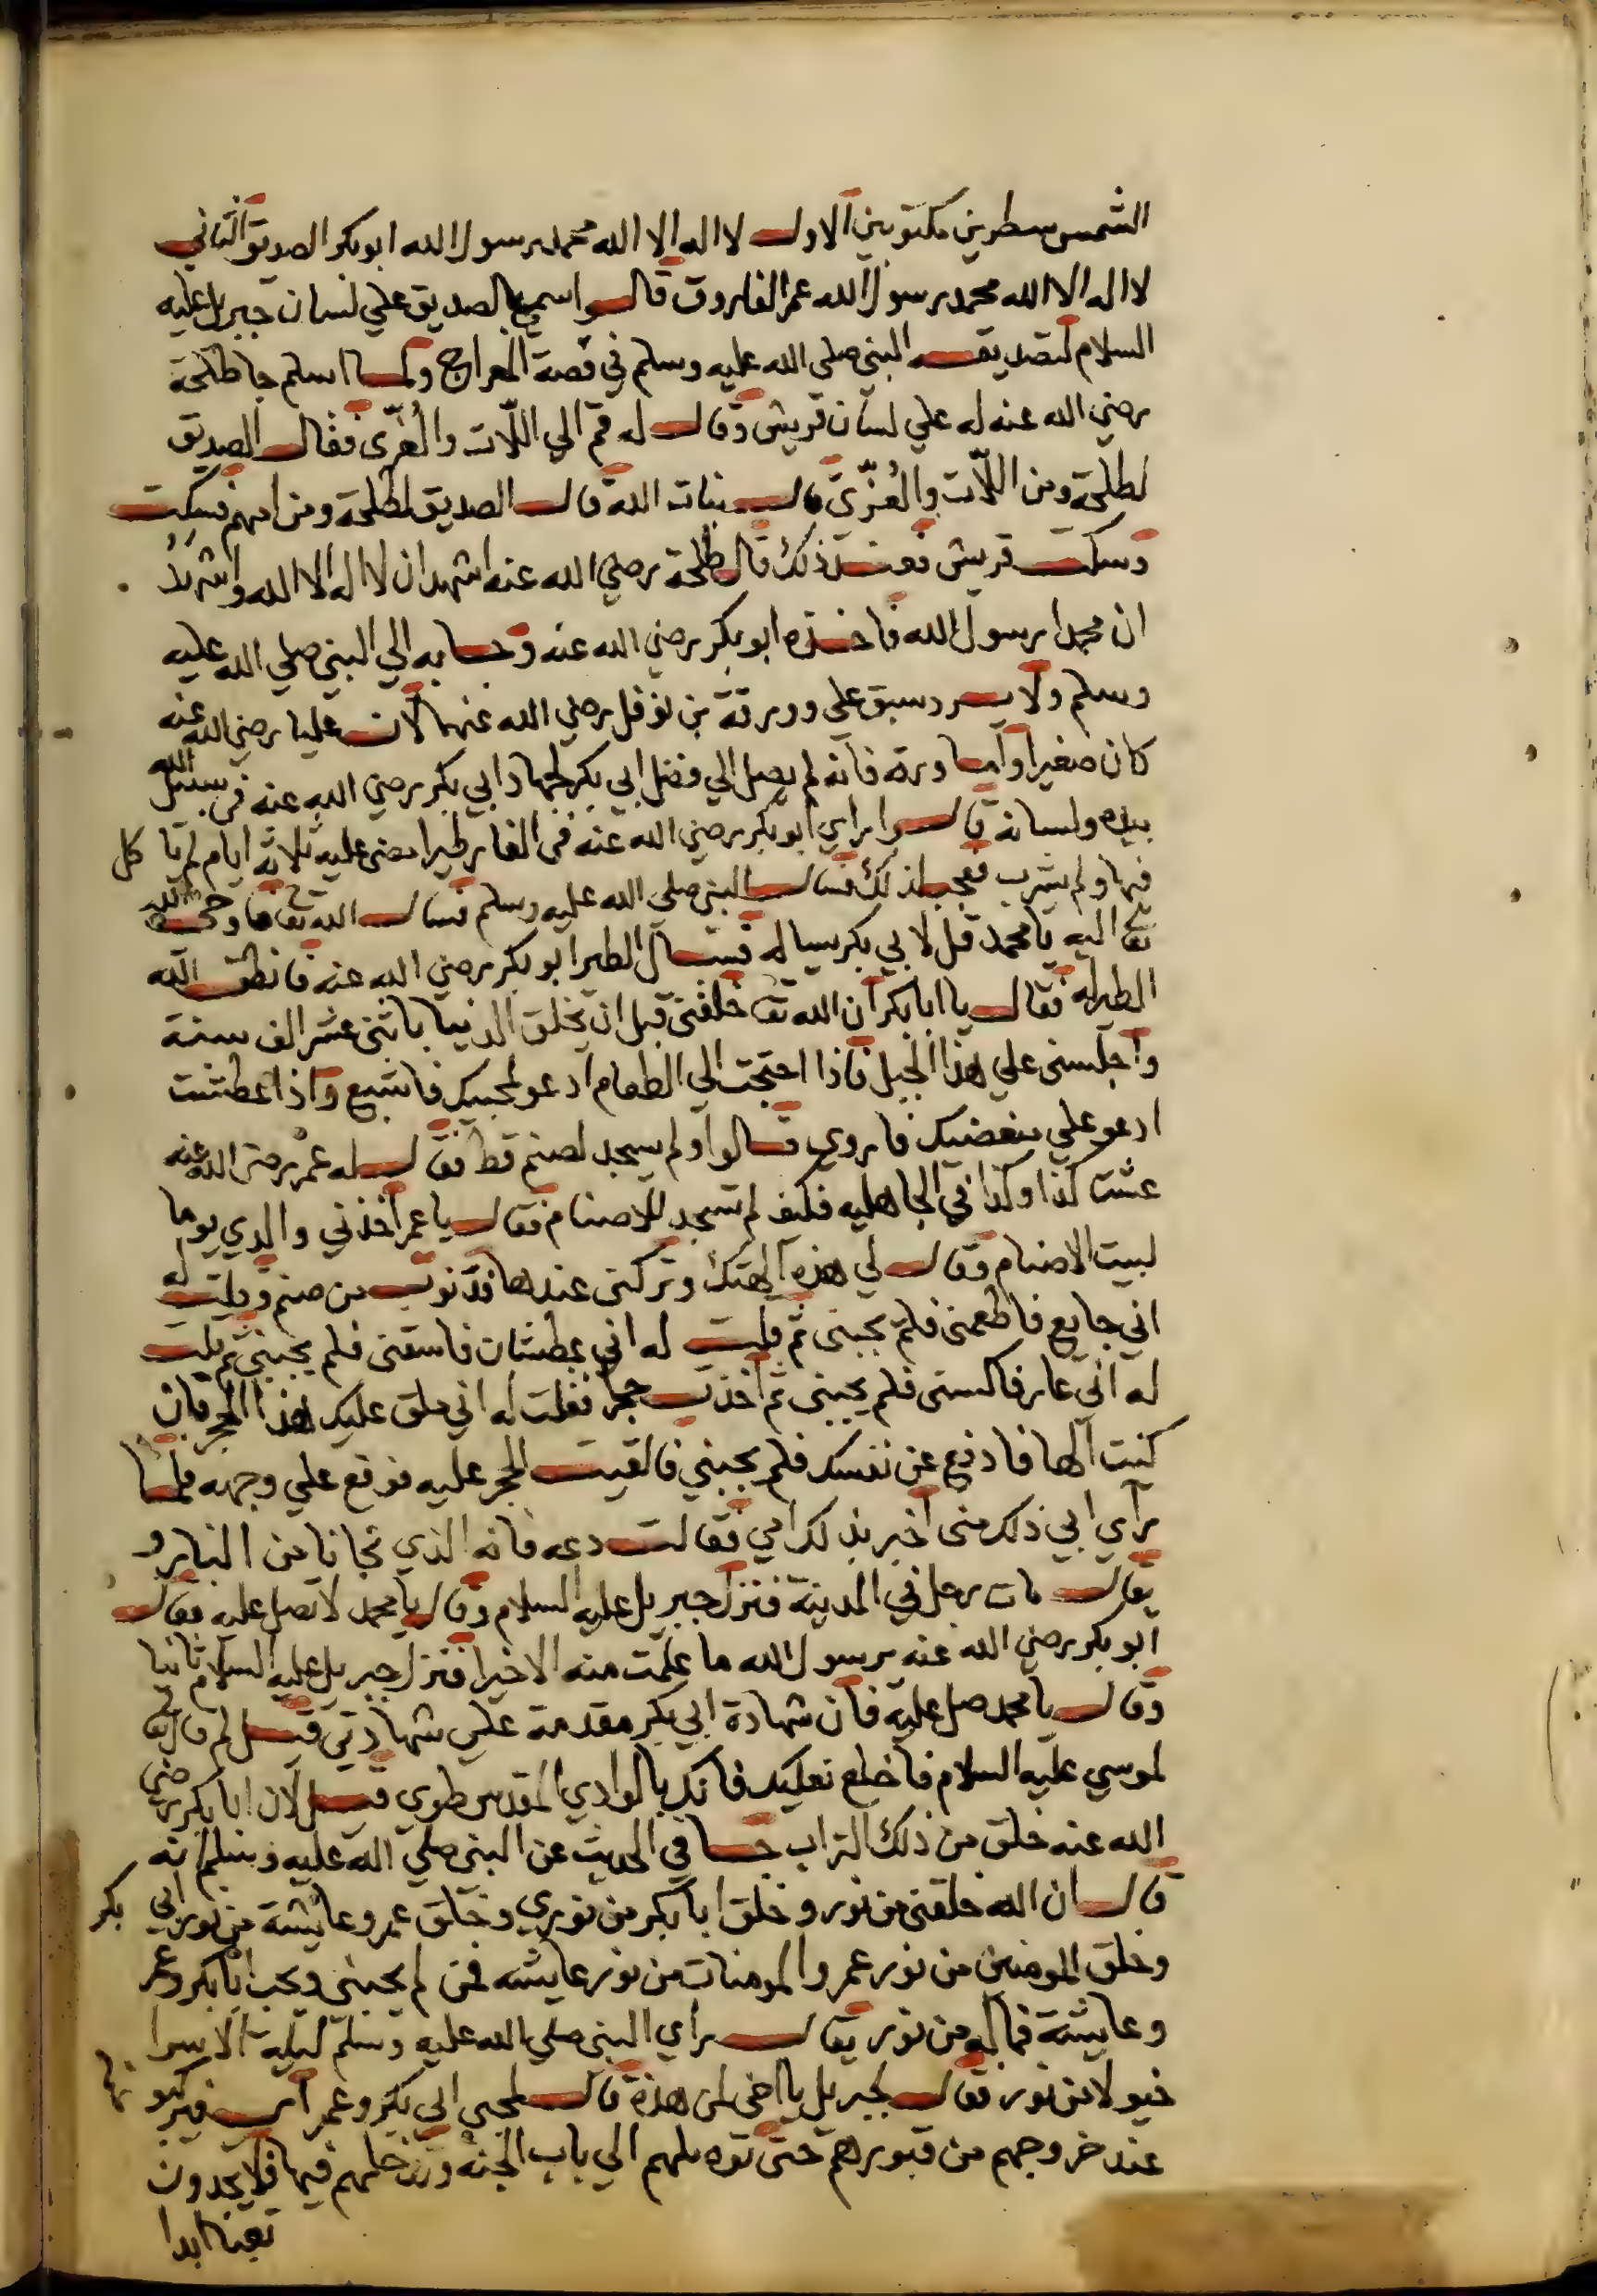 الشمس سطرين مكتوبين الاول لا اله الا الله محمد رسول الله ابو بكر الصديق الثاني
لا اله الا الله محمد رسول الله عمر الفاروق قالوا سمي بالصديق علي لسان جبريل عليه
السلام لتصديقه النبي صلي الله عليه وسلم في قصة المعراج ولما اسلم جا طلحة
رضي الله عنه له علي لسان قريش وقال له قم الي اللّات والعُزّى فقال الصديق
لطلحة ومن اللّات والعُزّى قال بنات الله قال الصديق لطلحة ومن امهم فسكت
وسكت قريش فعند ذلك قال طلحة رضي الله عنه اشهد ان لا اله الا الله واشهد
ان محمدا رسول الله فاخذه ابو بكر رضي الله عنه وجا به الي النبي صلي الله عليه
وسلم ولا يرد سبق علي وورقة بن نوفل رضي الله عنهما لان عليا رضي الله عنه
كان صغيرا واما ورقة فانه لم يصل الي فضل ابي بكر لجهاد ابي بكر رضي الله عنه في سبيل الله
بيده ولسانه قالوا راي ابو بكر رضي الله عنه في الغار طيرا مضى عليه ثلاثة ايام لم يا كل
فيها ولم يشرب فعجب لذلك فسال النبي صلي الله عليه وسلم فسال الله تعا فاوحي الله
تعا اليه يا محمد قل لابي بكر يساله فسال الطير ابو بكر رضي الله عنه فانطق الله
الطير له فقال يا ابا بكر ان الله تعا خلقني قبل ان يخلق الدنيا باثني عشر الف سنة
واجلسني علي هذا الجبل فاذا احتجت الي الطعام ادعو لمحبيك فاشبع واذا عطشت
ادعو علي مبغضيك فاروي قالوا ولم يسجد لصنم قط فقال له عمر رضي الله عنه
عشت كذا وكذا في الجاهليه فكيف لم تسجد للاصنام فقال يا عمر اخذني والدي يوما
لبيت الاصنام وقال لي هذه آلهتك وتركني عندها فدنوت من صنم وقلت له
اني جايع فاطعمني فلم يجبني ثم قلت له اني عطشان فاسقني فلم يجبني ثم قلت
له اني عار فاكسني فلم يجبني ثم اخذت حجرا فقلت له اني ملق عليك هذا الحجر فان
كنت آلها فادفع عن نفسك فلم يجبني فالقيت الحجر عليه فوقع علي وجهه فلما
راي ابي ذلك مني اخبر بذلك امي فقالت دعه فانه الذي نجانا من النار و
يقال مات رجل في المدينة فنزل جبريل عليه السلام وقال يا محمد لا تصل عليه فقال
ابو بكر رضي الله عنه يرسول الله ما علمت منه الا خيرا فنزل جبريل عليه السلام ثانيا
وقال يا محمد صل عليه فان شهادة ابي بكر مقدمة علي شهادتي قيل لم قال تعا
لموسي عليه السلام فاخلع نعليك فانك بالوادي المقدس طوي قيل لان ابا بكر رضي
الله عنه خلق من ذلك التراب جا في الحديث عن النبي صلي الله عليه وسلم انه
قال ان الله خلقني من نور وخلق ابا بكر من نوري وخلق عمر وعايشة من نور ابي بكر
وخلق المومنين من نور عمر والمومنات من نور عايشه فمن لم يحبني ويحب ابا بكر وعمر
وعايشة فما له من نور يقال راي النبي صلي الله عليه وسلم ليلة الاسرا
خيولا من نور فقال لجبريل يا اخي لمن هذه قال لمحبي ابي بكر وعمر اي فيركبو نها
عند خروجهم من قبورهم حتى توصلهم الي باب الجنة وتدخلهم فيها فلا يجدون
تعبا ابدا